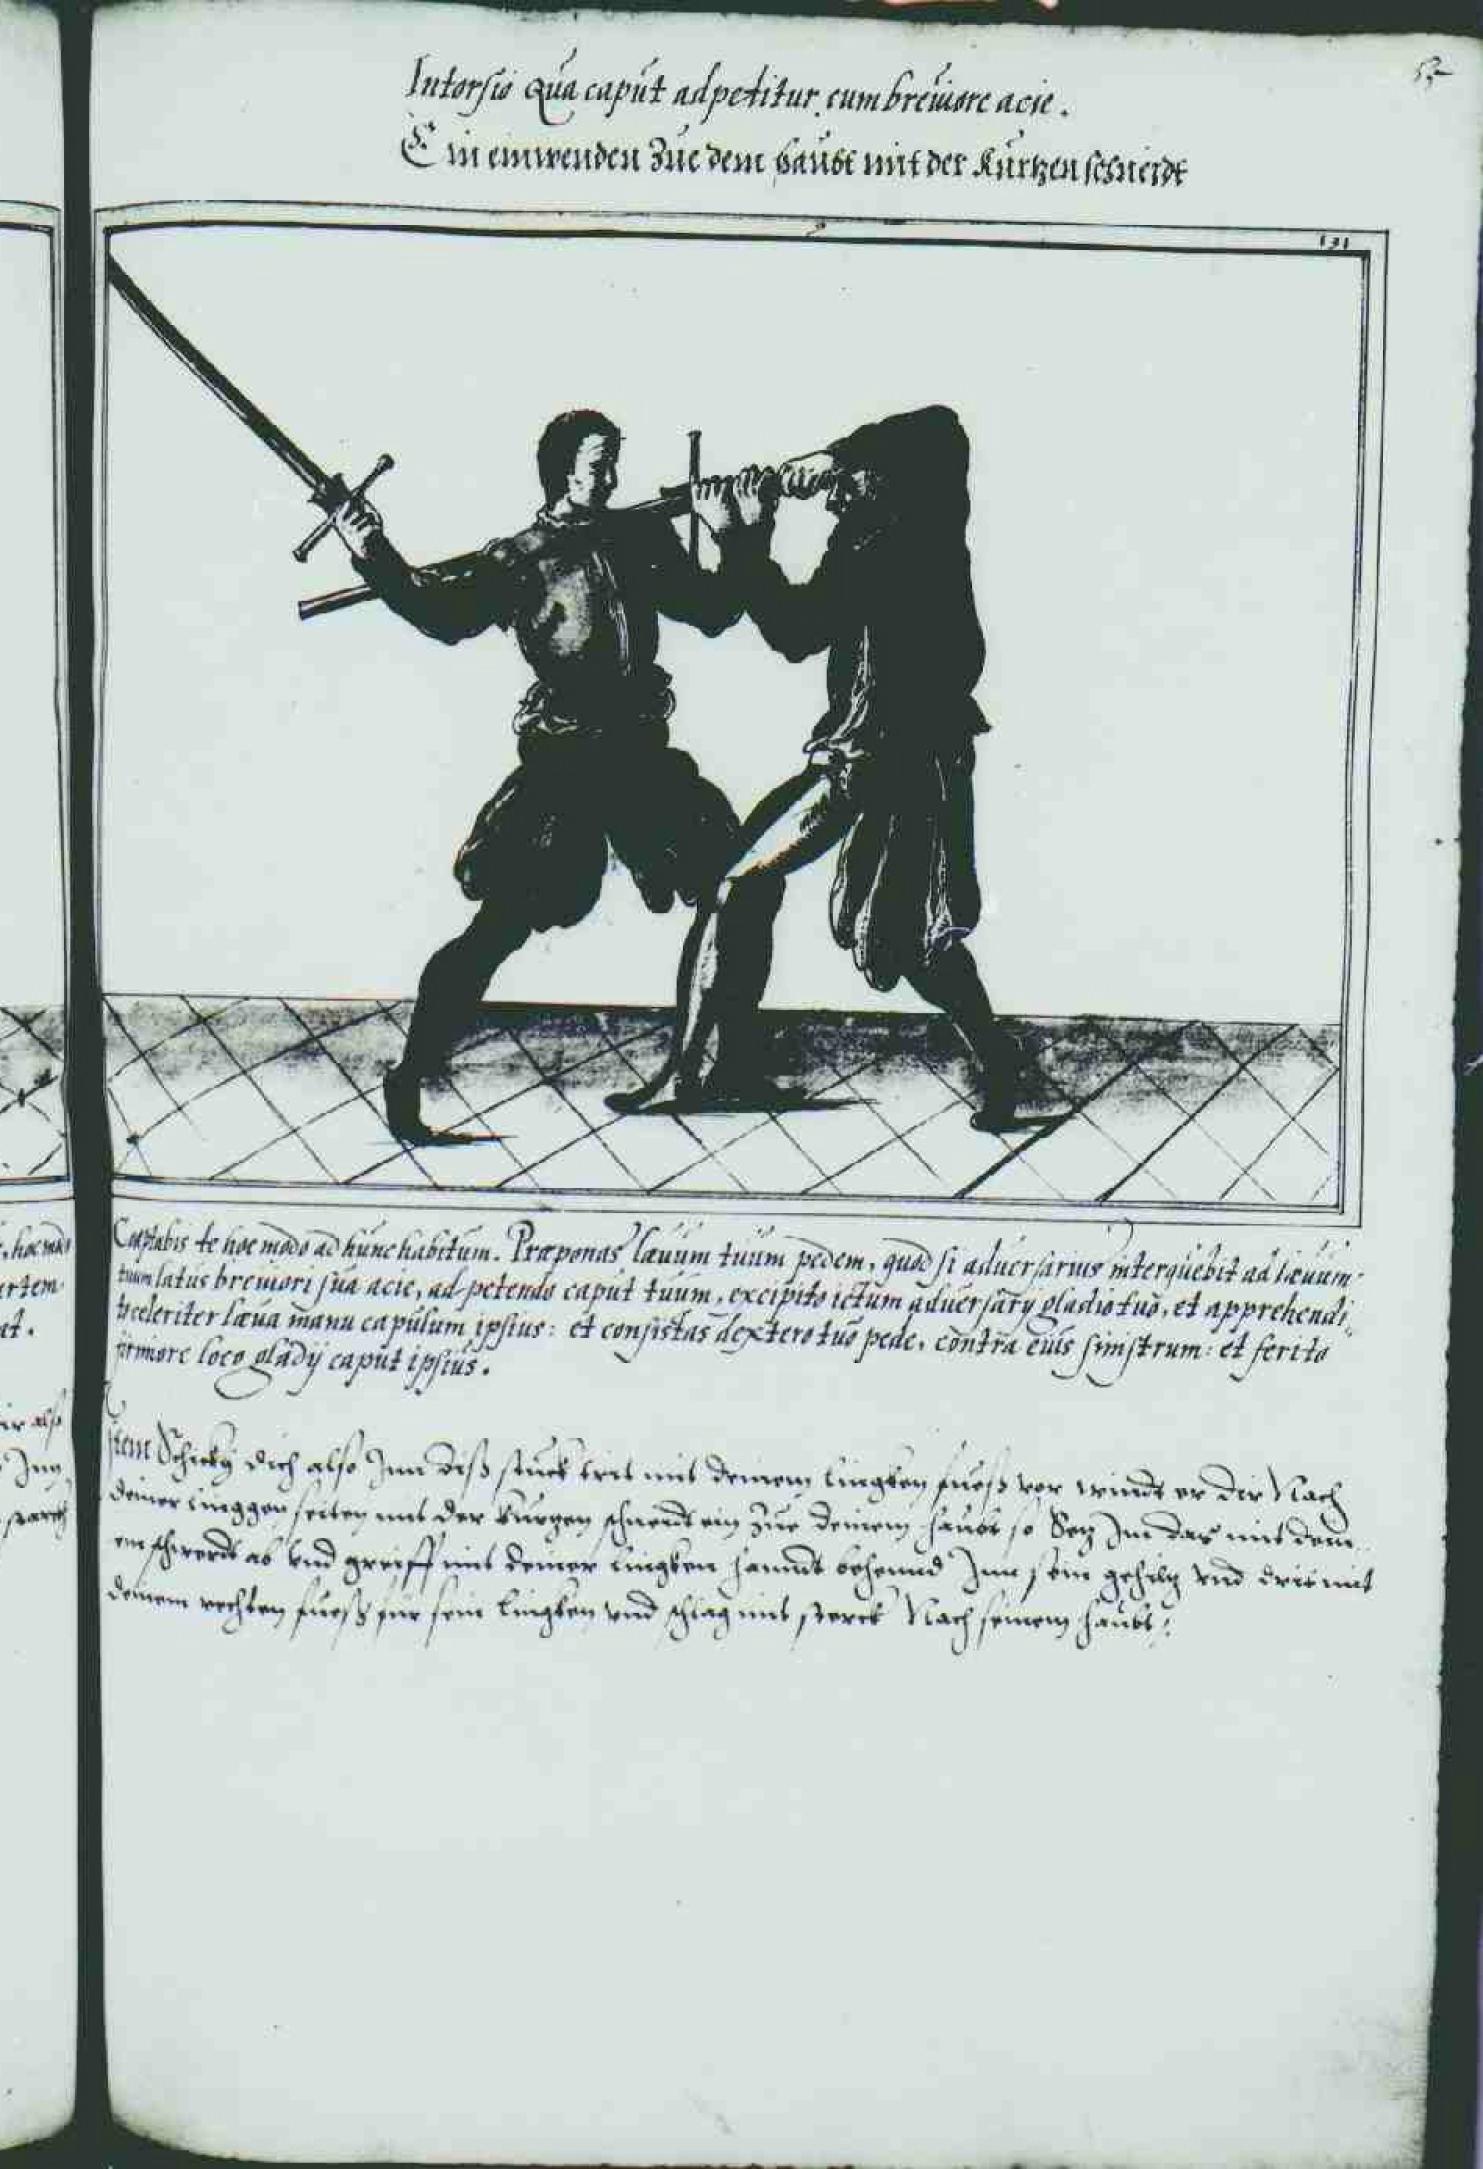 Intorsio Qua caput adpetitur, cum breuiore acie.
Ein einwenden Zue dem haubt mit der Kurtzen schneidt
131
, hoc modo
artem
at.
Coaptabis te hoc modo ad hunc habitum. Præponas læuum tuum pedem, quod si aduersarius interquebit ad læuum
tuum latus breuiori sua acie, ad petendo caput tuum, excipito ictum aduersarij gladio tuo, et apprehendi,,
to celeriter læua manu capulum ipsius: et consistas dextero tuo pede, contra euis sinistrum: et ferito
firmiore loco gladij caput ipsius.
ir also
Inn
starck
Item Schickh dich also Inn diß stuck trit mit deinem linggken fueß vor windt er dir Nach
deiner linggen seiten mit der kurtzen schneidt ein Zue deinem haubt so Setz Im das mit dem
em schwerdt ab vnd greiff mit deiner linggken hanndt behennd Inn sein gehiltz vnd drit mit
deinem rechten fueß fur sein linggken vnd schlag mit sterck Nach seinem haubt: